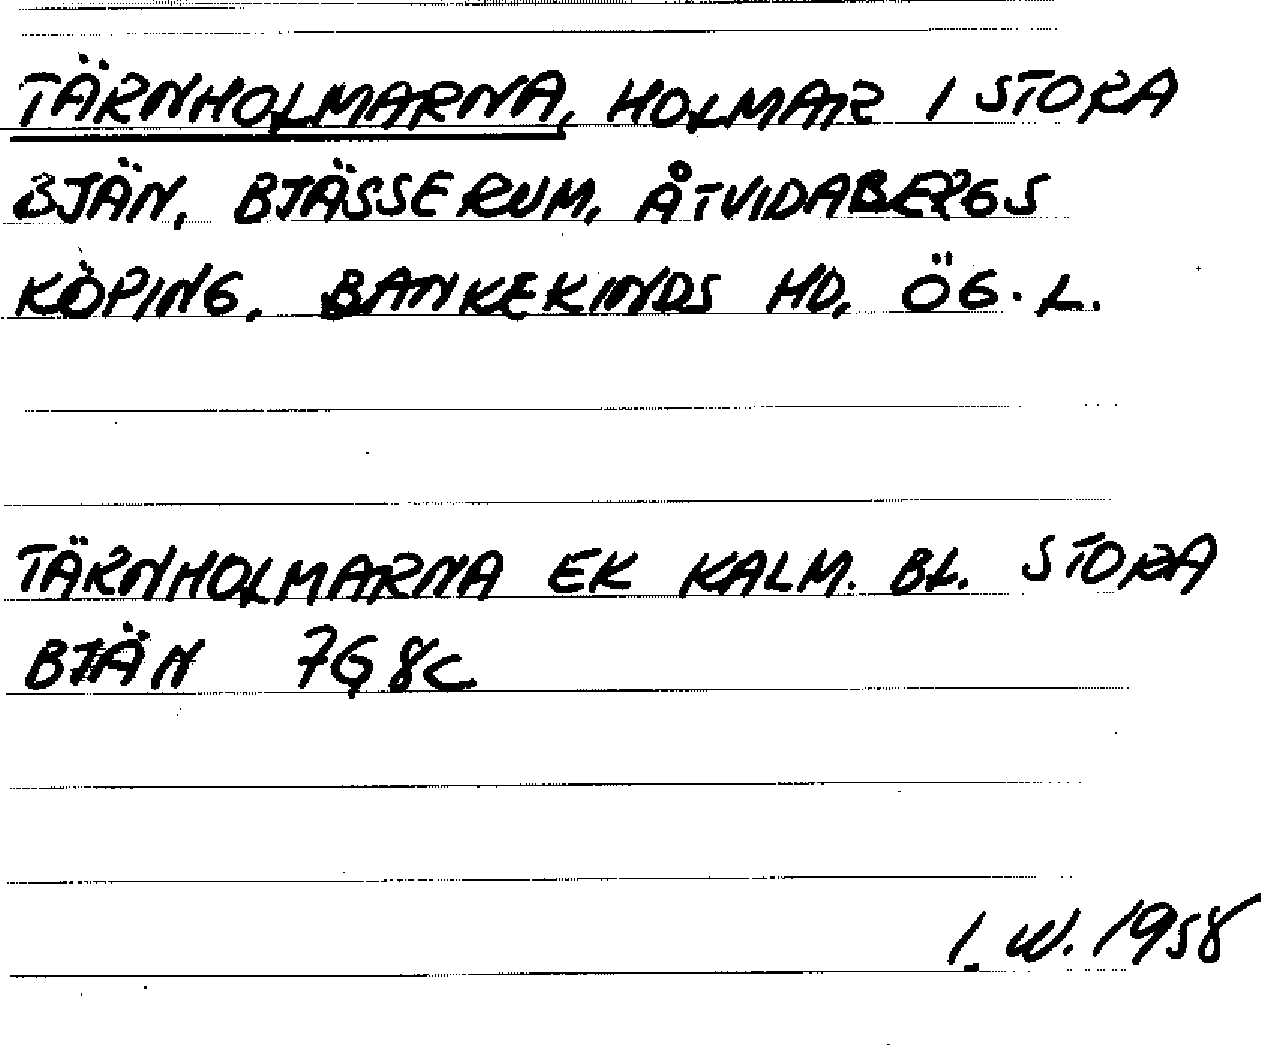 TÄRNHOLMARNA, HOLMAR I STORA
BJÄN, BJÄSSERUM, ÅTVIDABERGS
KÖPING, BANKEKINDS HD, ÖG. L.
TÄRNHOLMARNA EK KALM. BL. STORA
BJÄN 7G 8C
I. W. 1958